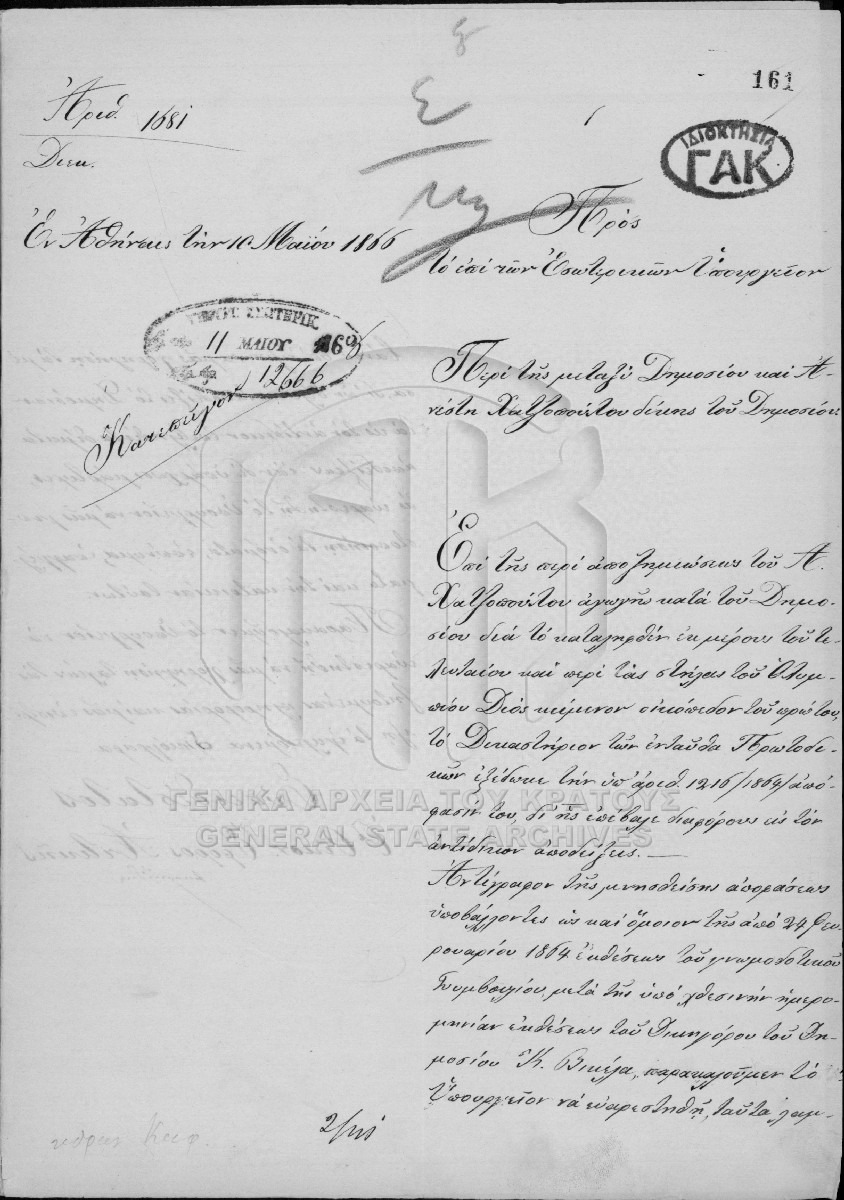 161
Ἀριθ. 1681
Διεκ.
ΙΔΙΟΚΤΗΣΙΑ
ΓΑΚ
Ἐν Ἀθήναις τὴν 10 Μαΐου 1866
Πρὸς
τὸ ἐπὶ τῶν Ἐσωτερικῶν Ὑπουργεῖον
ΕΣΩΤΕΡΙΚ
11 ΜΑΙΟΥ 186
12666
Κατεπεῖγον
Περὶ τῆς μεταξὺ Δημοσίου καὶ Ἀ-
νέστη Χατζοπούλου δίκης τοῦ Δημοσίου
Ἐπὶ τῆς περὶ ἀποζημιώσεως τοῦ Α.
Χατζοπούλου ἀγωγῆς κατὰ τοῦ Δημο-
σίου διὰ τὸ καταληφθὲν ἐκ μέρους τοῦ τε-
λευταίου καὶ περὶ τὰς στήλας τοῦ Ὀλυμ-
πίου Διὸς κείμενον οἰκόπεδον τοῦ πρώτου,
τὸ Δικαστήριον τῶν ἐνταῦθα Πρωτοδι-
κῶν ἐξέδωκε τὴν ὑπ' ἀριθ. 1216/1864/ ἀπό-
φασίν του, δι' ἧς ἐπέβαλε διαφόρους εἰς τὸν
ἀντίδικον ἀποδείξεις. —
Ἀντίγραφον τῆς μνησθείσης ἀποφάσεως
ὑποβάλλοντες ὡς καὶ ὅμοιον τῆς ἀπὸ 24 Φεβ-
ρουαρίου 1864 ἐκθέσεως τοῦ γνωμοδοτικοῦ
Συμβουλίου, μετὰ τῆς ὑπὸ χθεσινὴν ἡμερο-
μηνίαν ἐκθέσεως τοῦ Δικηγόρου τοῦ Δη-
μοσίου Κ. Βικέλα, παρακαλοῦμεν τὸ
Ὑπουργεῖον νὰ εὐαρεστηθῇ, ταῦτα λαμ-
ΓΕΝΙΚΑ ΑΡΧΕΙΑ ΤΟΥ ΚΡΑΤΟΥΣ
GENERAL STATE ARCHIVES